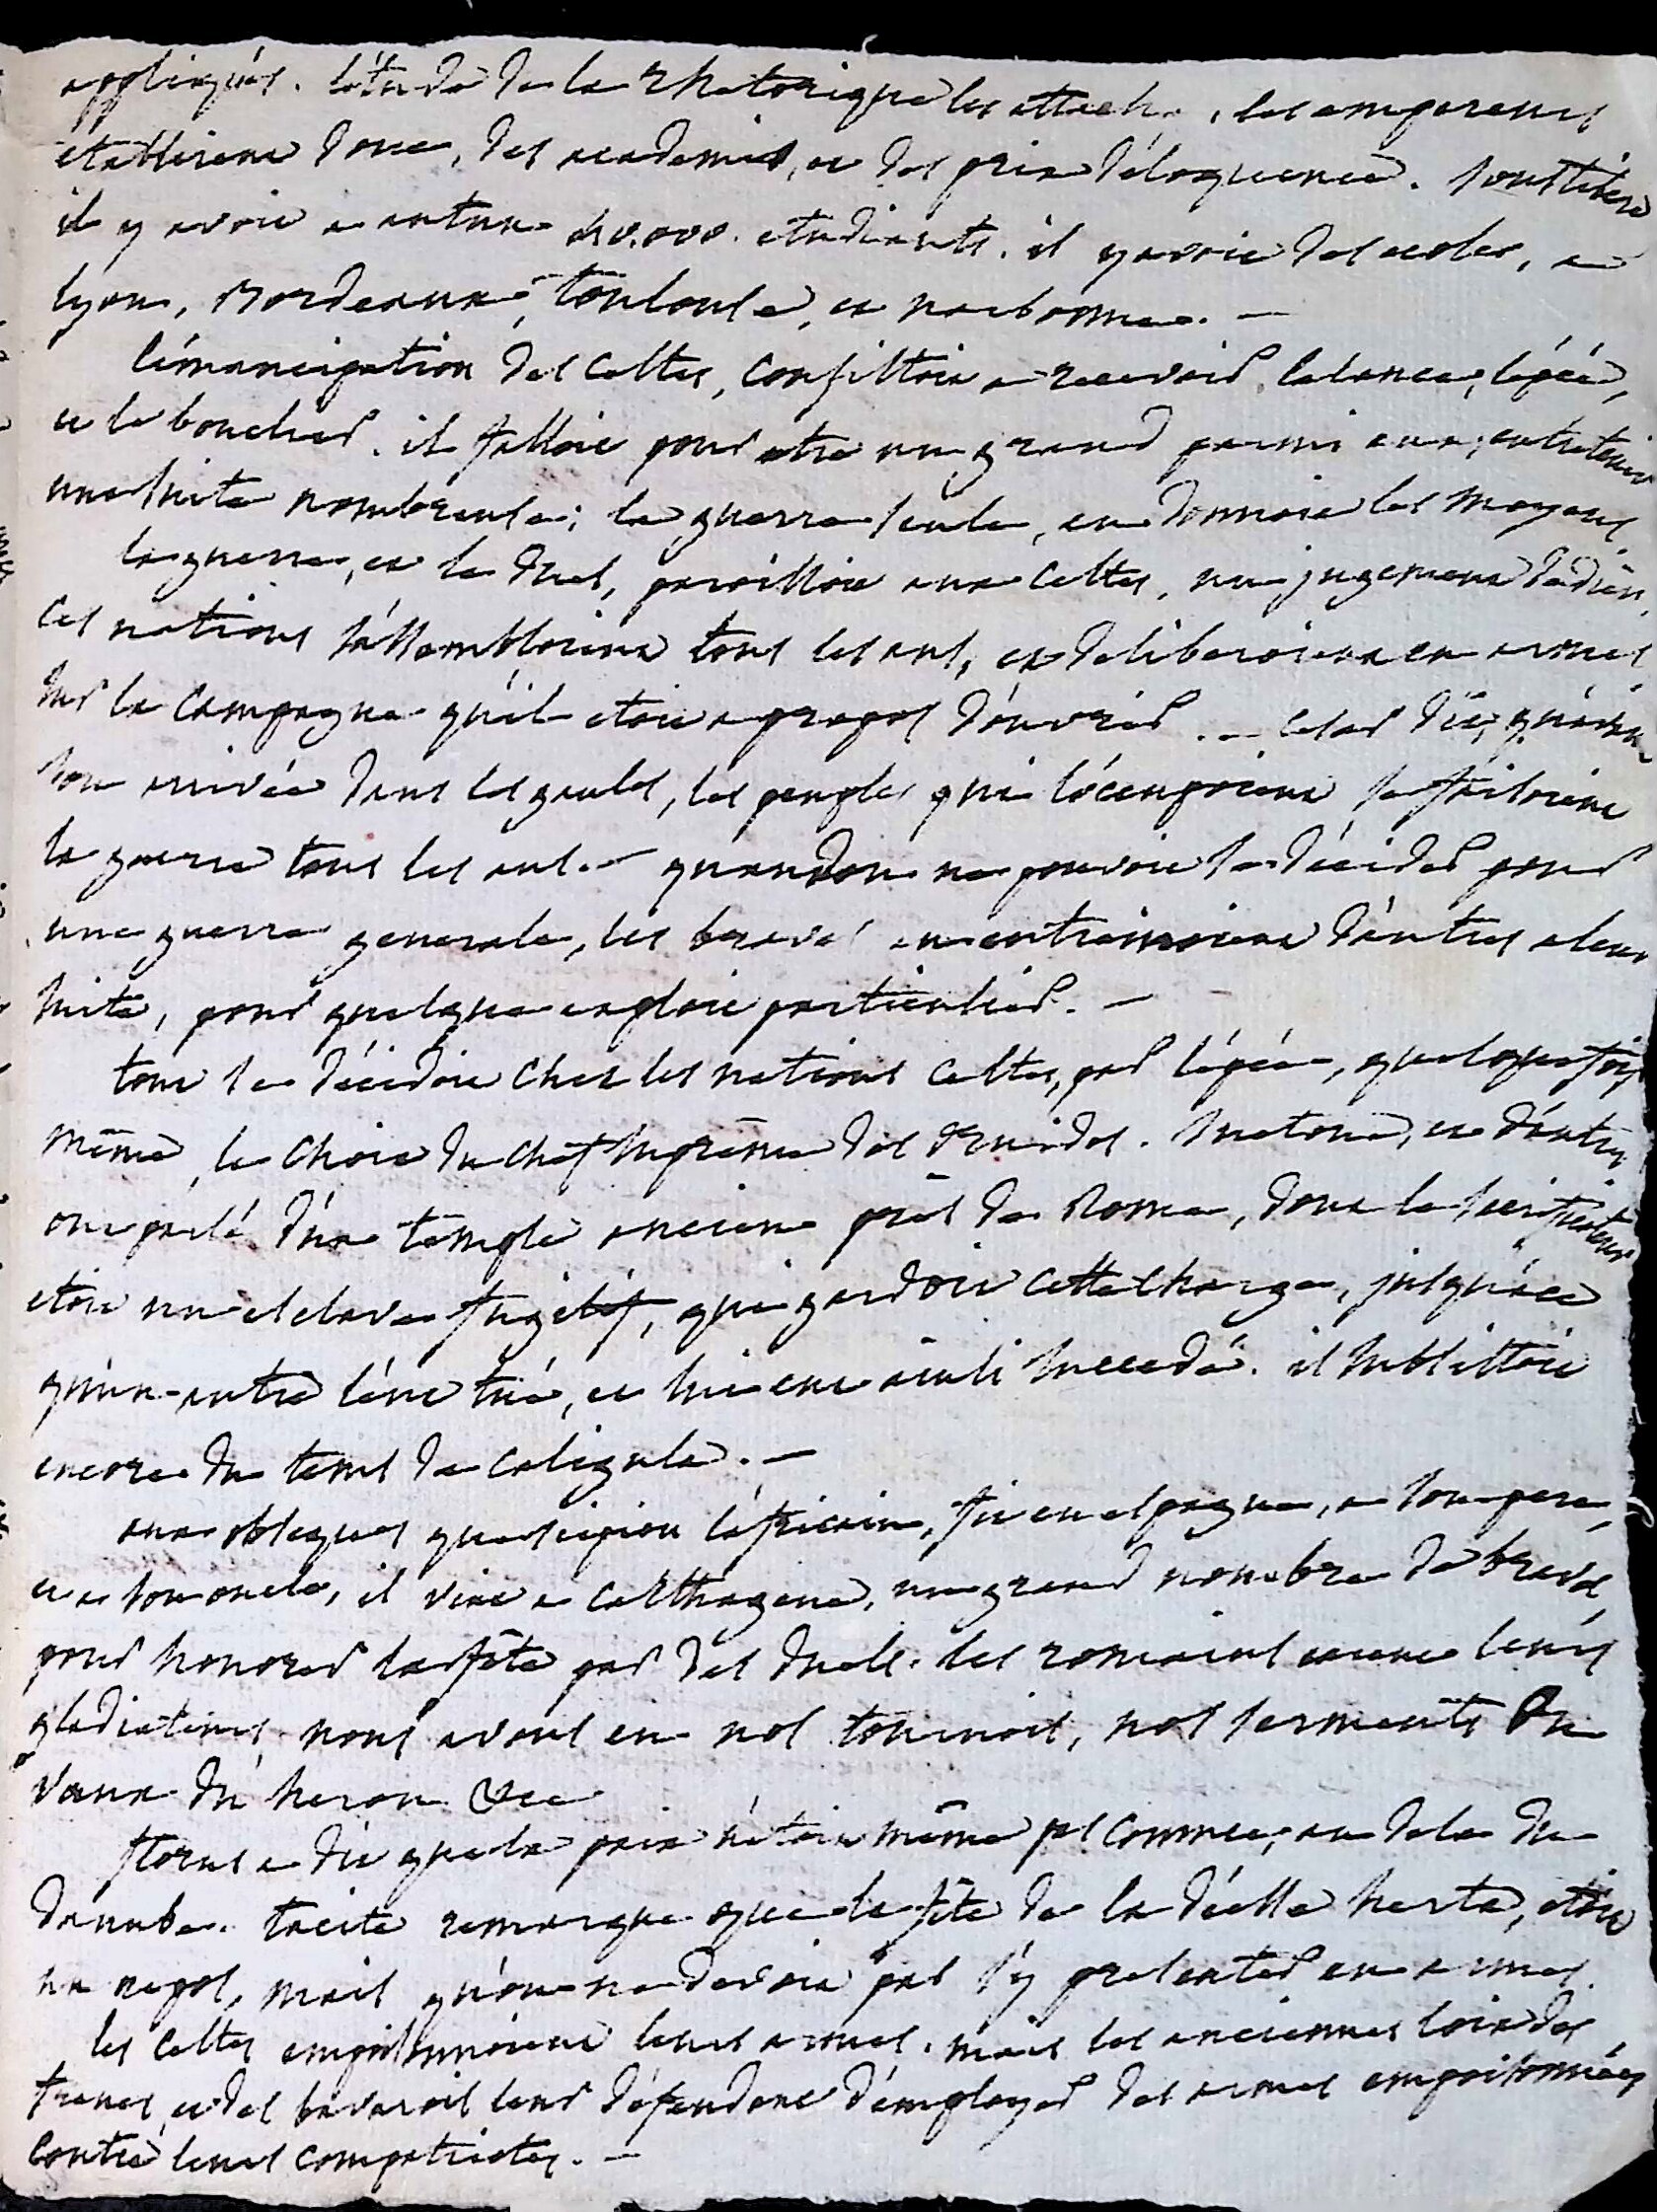 appliqués. l'étude de la rhetorique les attacha, les empereurs
etablirent donc, des academies, et des prix d'éloquence. sous tibere
il y avoit a autun 40.000. etudiants. il y avoit des ecoles, a
lyon, Bordeaux, toulouse, et narbonne. —
l'émancipation des celtes, consistoit a recevoir la lance, l'épée,
et le bouclier. il falloit pour etre un grand parmi eux, entretenir
une suite nombreuse; la guerre seule, en donnoit les moyens
la guerre, et le duel, paroissoit aux celtes, un jugement de dieu,
ces nations s'assembloient tous les ans, et deliberoient en armes,
sur la campagne qu'il etoit a propos d'ouvrir. — cesar dit, qu'avant
son arrivée dans les gaules, les peuples qui l'occupoient se faisoient
la guerre tous les ans. — quand on ne pouvoit se décider pour
une guerre generale, les braves en entrainoient d'autres a leur
suite, pour quelque exploit particulier. —
tout se décidoit chez les nations celtes, par l'épée, quelquefois
même, le choix du chef suprême des druides. suetone, et d'autres
ont parlé d'un temple ancien près de Rome, dont le sacrificateur
etoit un esclave fugitif, qui gardoit cette charge, jusqu'a ce
qu'un autre l'eut tué, et lui eut ainsi succedé. il subsistoit
encore du tems de caligula. —
aux obseques que scipion l'africain, fit en espagne, a son pere,
et a son oncle, il vint a carthagene, un grand nombre de braves,
pour honorer la fête par des duels. les romains eurent leurs
gladiateurs, nous avons eu nos tournois, nos serments du
vœux du heron &ca
florus a dit que la paix n'étoit même pas connue, au dela du
danube. tacite remarque que la fête de la déesse herta, etoit
un repos, mais qu'on ne devoit pas s'y presenter en armes.
les celtes empoisonnoient leurs armes. mais les anciennes loix des
francs, et des bavarois leur défendent d'employer des armes empoisonnées
contre leurs compatriotes. —